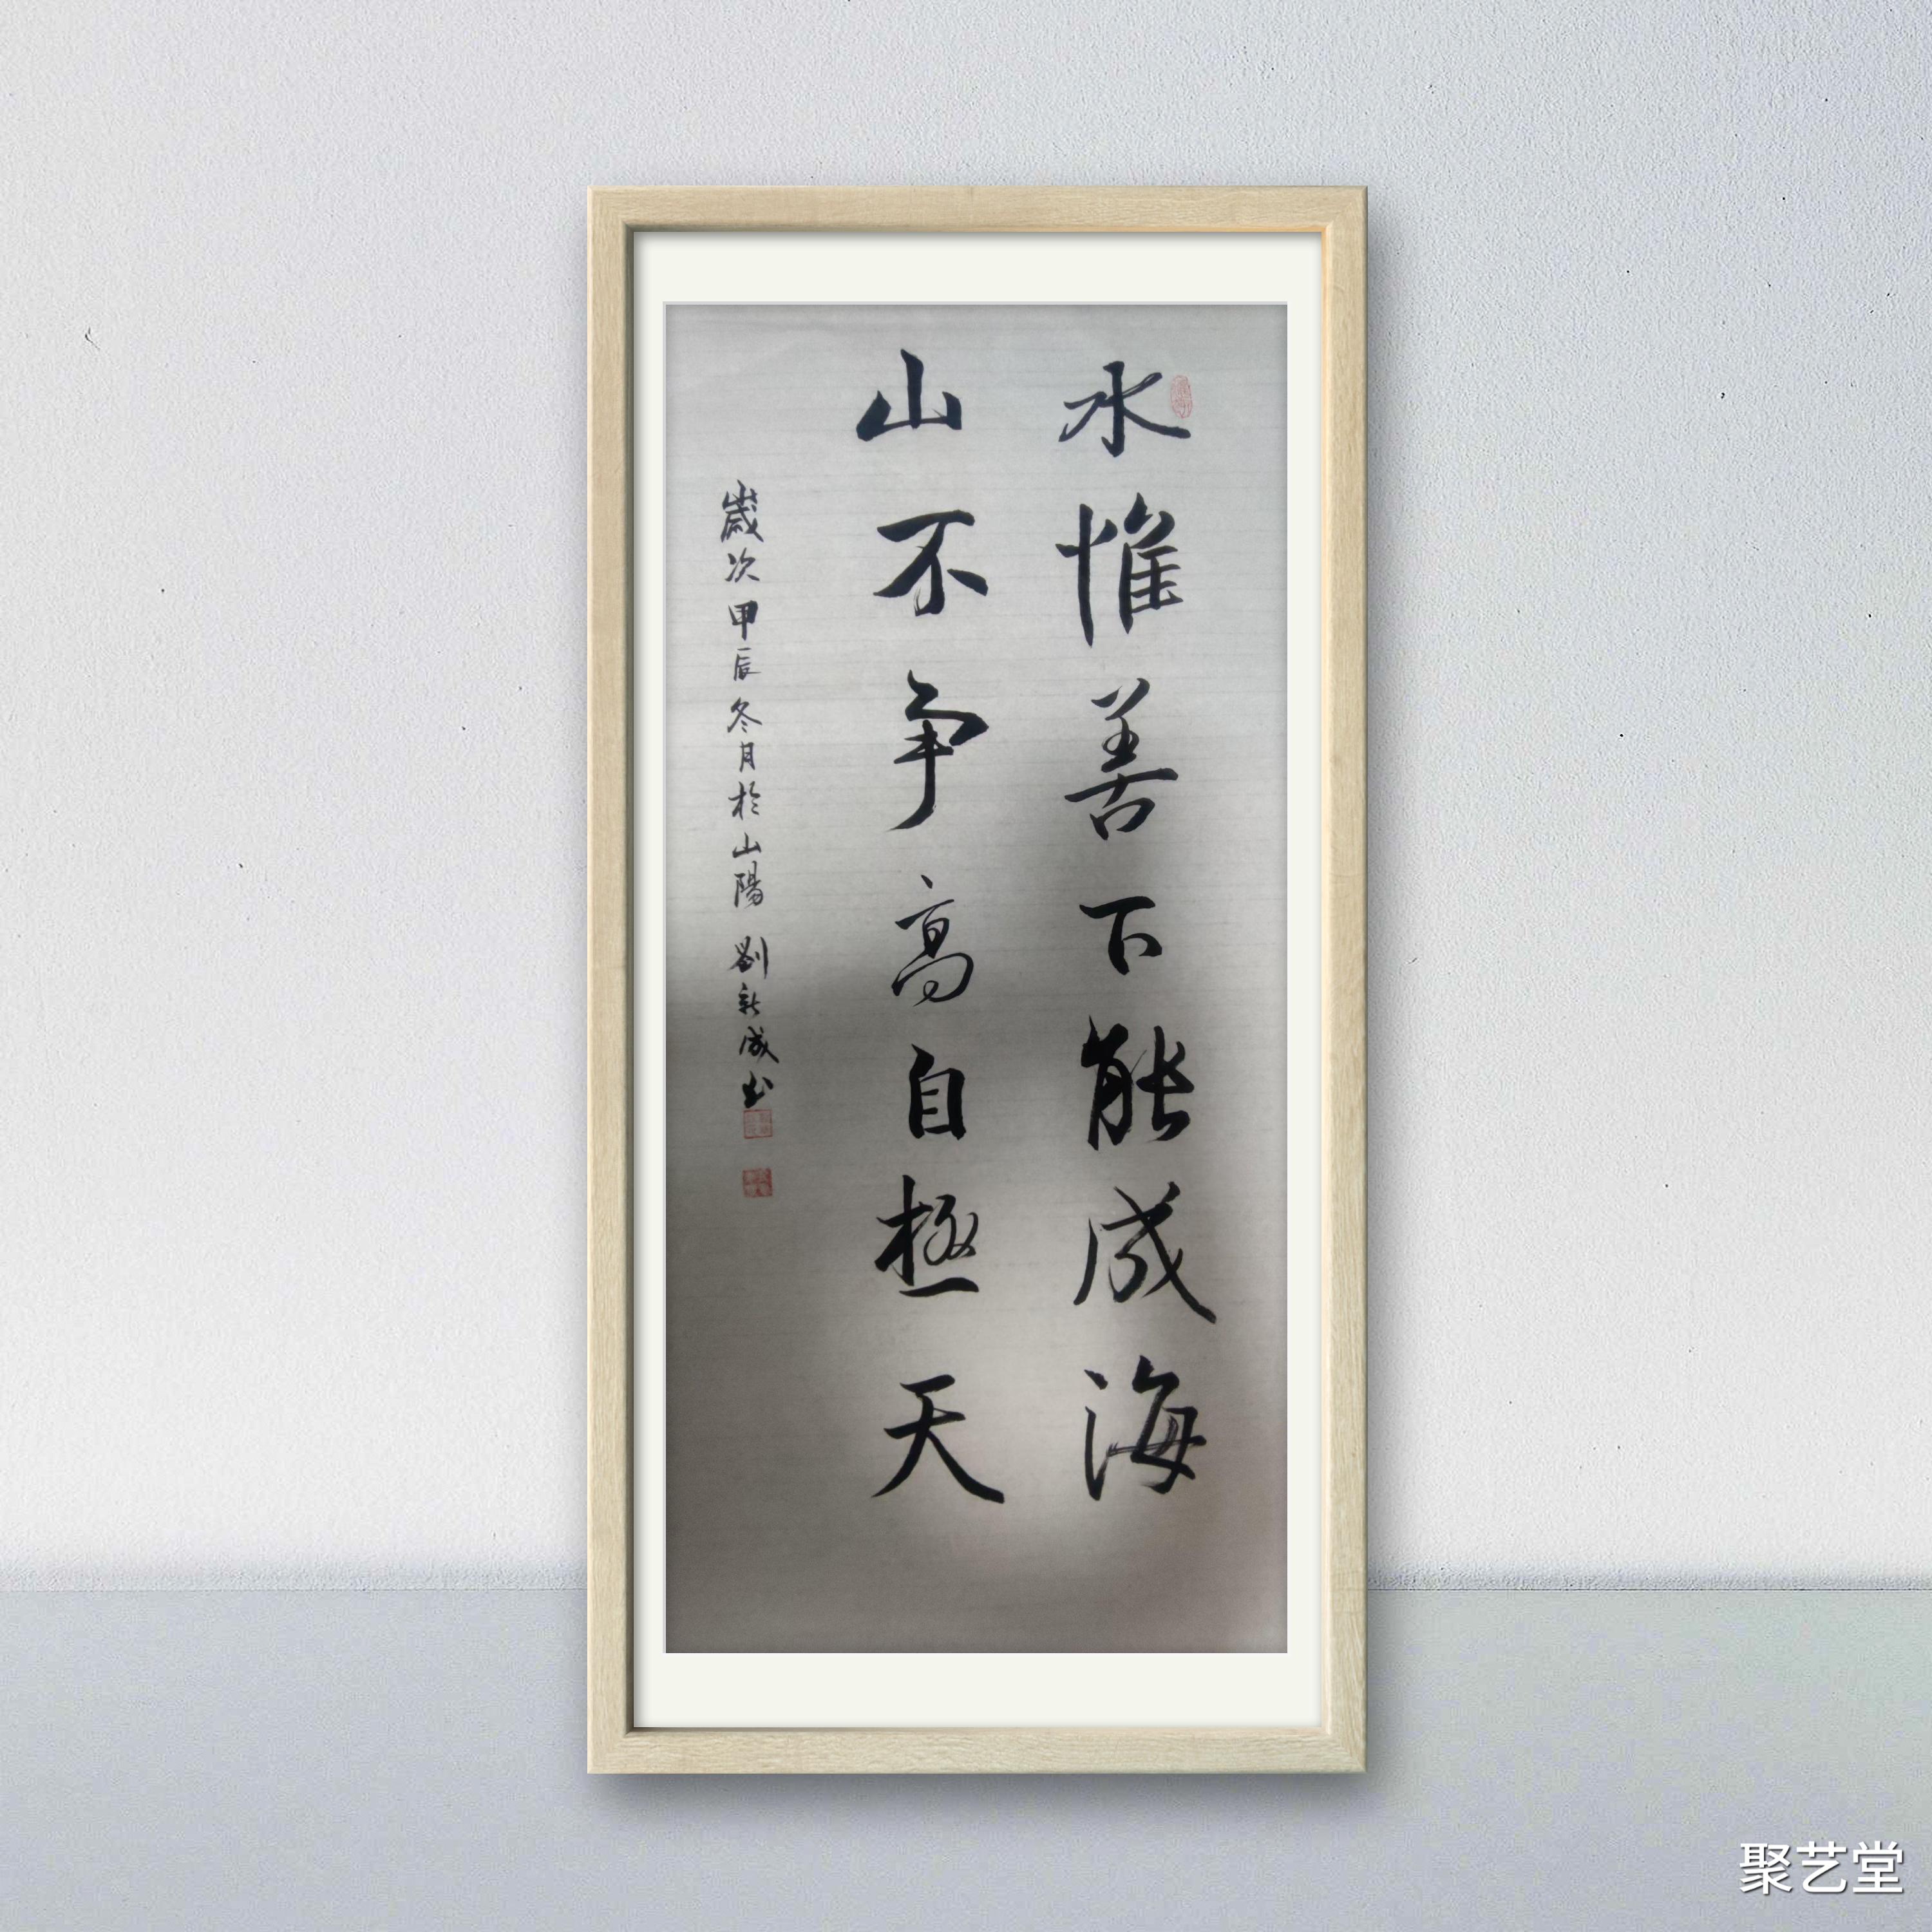 水惟善下能成海
山不争高自極天
歲次甲辰冬月於山陽 劉新成书
聚艺堂